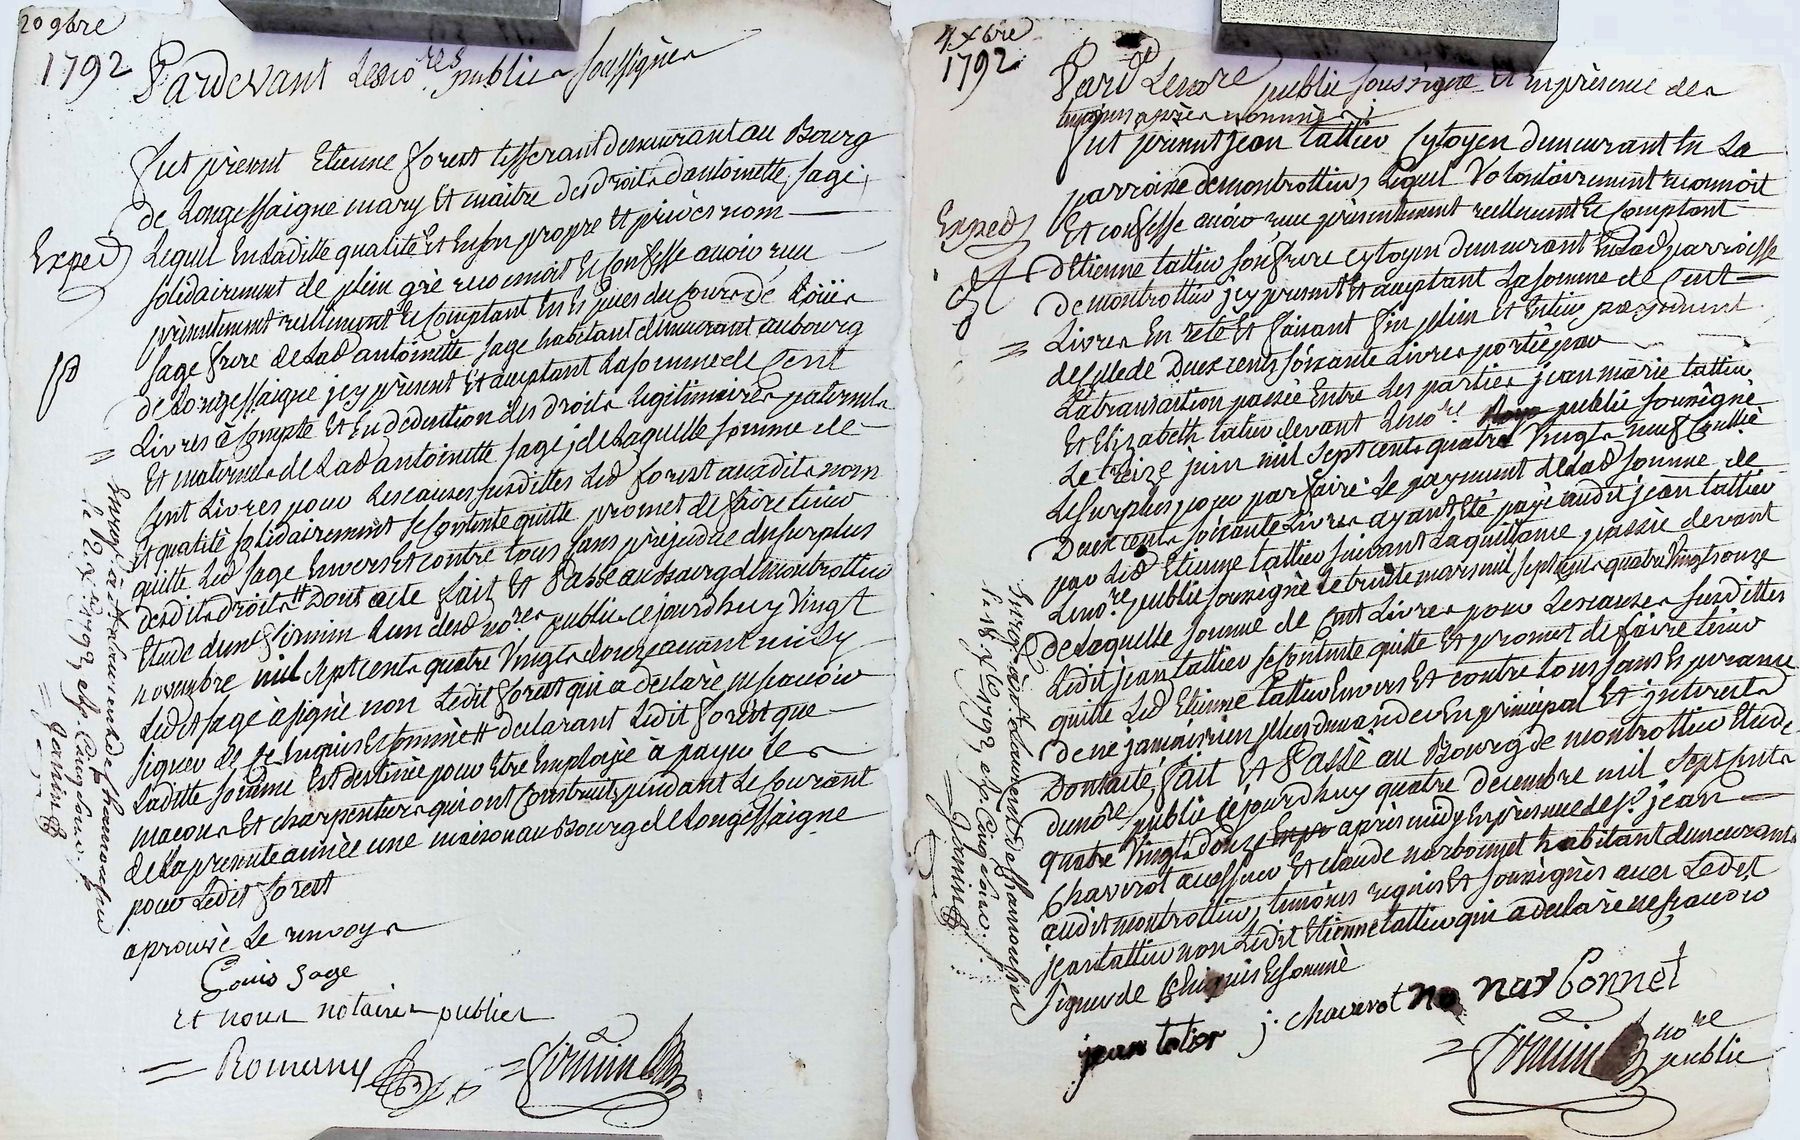 20 9bre
1792
Pardevant Les no.res publics soussignés
fut présent Etienne forest tisserant demeurant au Bourg
de Longessaigne mary Et maitre des droits dantoinette sage,
Exped
Lequel En Laditte qualité Et En son propre Et privés nom
solidairement de plein gré reconnoit Et Confesse avoir reçu
présentement réellement Et Comptant En Especes du Cours de Loüis
sage frere de Lad antoinette sage habitant demeurant au bourg
de Longessaigne jcy présent Et acceptant La somme de Cent
Livres à Compte Et En deduction des droits legitimaires paternels
Et maternels de Lad antoinette sage, de Laquelle somme de
Cent Livres pour Les causes susdittes Led forest ausdits nom
Et qualité solidairement se Contente quitte promet de faire tenir
quitte Led sage Envers Et contre tous sans préjudice du surplus
desdits droits Dont acte fait Et Passé au Bourg de montrottier
Etude dume firmin L'un desd no.res publics ce jourdhuy Vingt
novembre mil sept cents quatre Vingts douze avant midy
Ledit sage à signé non Ledit forest qui a declaré ne savoir
signer de ce Enquis Et sommé declarant Ledit forest que
Laditte somme Est destinée pour Etre Employée à payer les
macons Et charpentiers qui ont Construits pendant Le Courant
de La presente année une maison au Bourg de Longessaigne
pour Ledit forest
aprouvé Le renvoy
Louis Sage
Et nous notaires publics
Romany
firmin
Enreg. à St Laurent de Chamousset
le 2 xb. 1792
Janin
4 xbre
1792
Pard Le no.re public soussigné Et En présence des
temoins après nommés
fut présent jean tallier Cytoyen demeurant En La
parroisse de montrottier, Lequel Volontairement reconnoit
Exped
Et confesse avoir reçu présentement réellement Et Comptant
d'Etienne tallier son frere cytoyen demeurant En Lad parroisse
de montrottier jcy présent Et acceptant La somme de Cent
Livres En reste Et faisant fin plein Et Entier payement
de Celle de Deux cents soixante Livres portée par
La transaction passée Entre Les parties jean marie tallier
Et Elizabeth tallier devant Le no.re public soussigné
Le treize juin mil sept cents quatre Vingts neuf Controllé
Le surplus pour parfaire Le payement de Lad somme de
Deux cents soixante Livres ayant Eté payé audit jean tallier
par Led Etienne tallier suivant La quittance passée devant
Le no.re public soussigné Le trente mars mil sept cents quatre Vingt onze
De Laquelle somme de Cent Livres pour Les causes susdittes
Ledit jean tallier se Contente quitte Et promet de faire tenir
quitte Led Etienne tallier Envers Et contre tous sans Esperance
de ne jamais rien plus demander En principal Et interests
Dont acte, fait Et Passé au Bourg de montrottier Etude
du no.re public ce jourdhuy quatre decembre mil sept cents
quatre Vingts douze après midy En présence de Sr. jean
Chaverot Et claude narbonnet habitant demeurants
audit montrottier, temoins requis Et soussignés avec Ledit
jean tallier non Ledit Etienne tallier qui a declaré ne savoir
signer de ce Enquis Et sommé
jean talier j. chaverot narbonnet
firmin no.re
public
Enreg. à St Laurent de Chamousset
le 18 xb. 1792
Janin